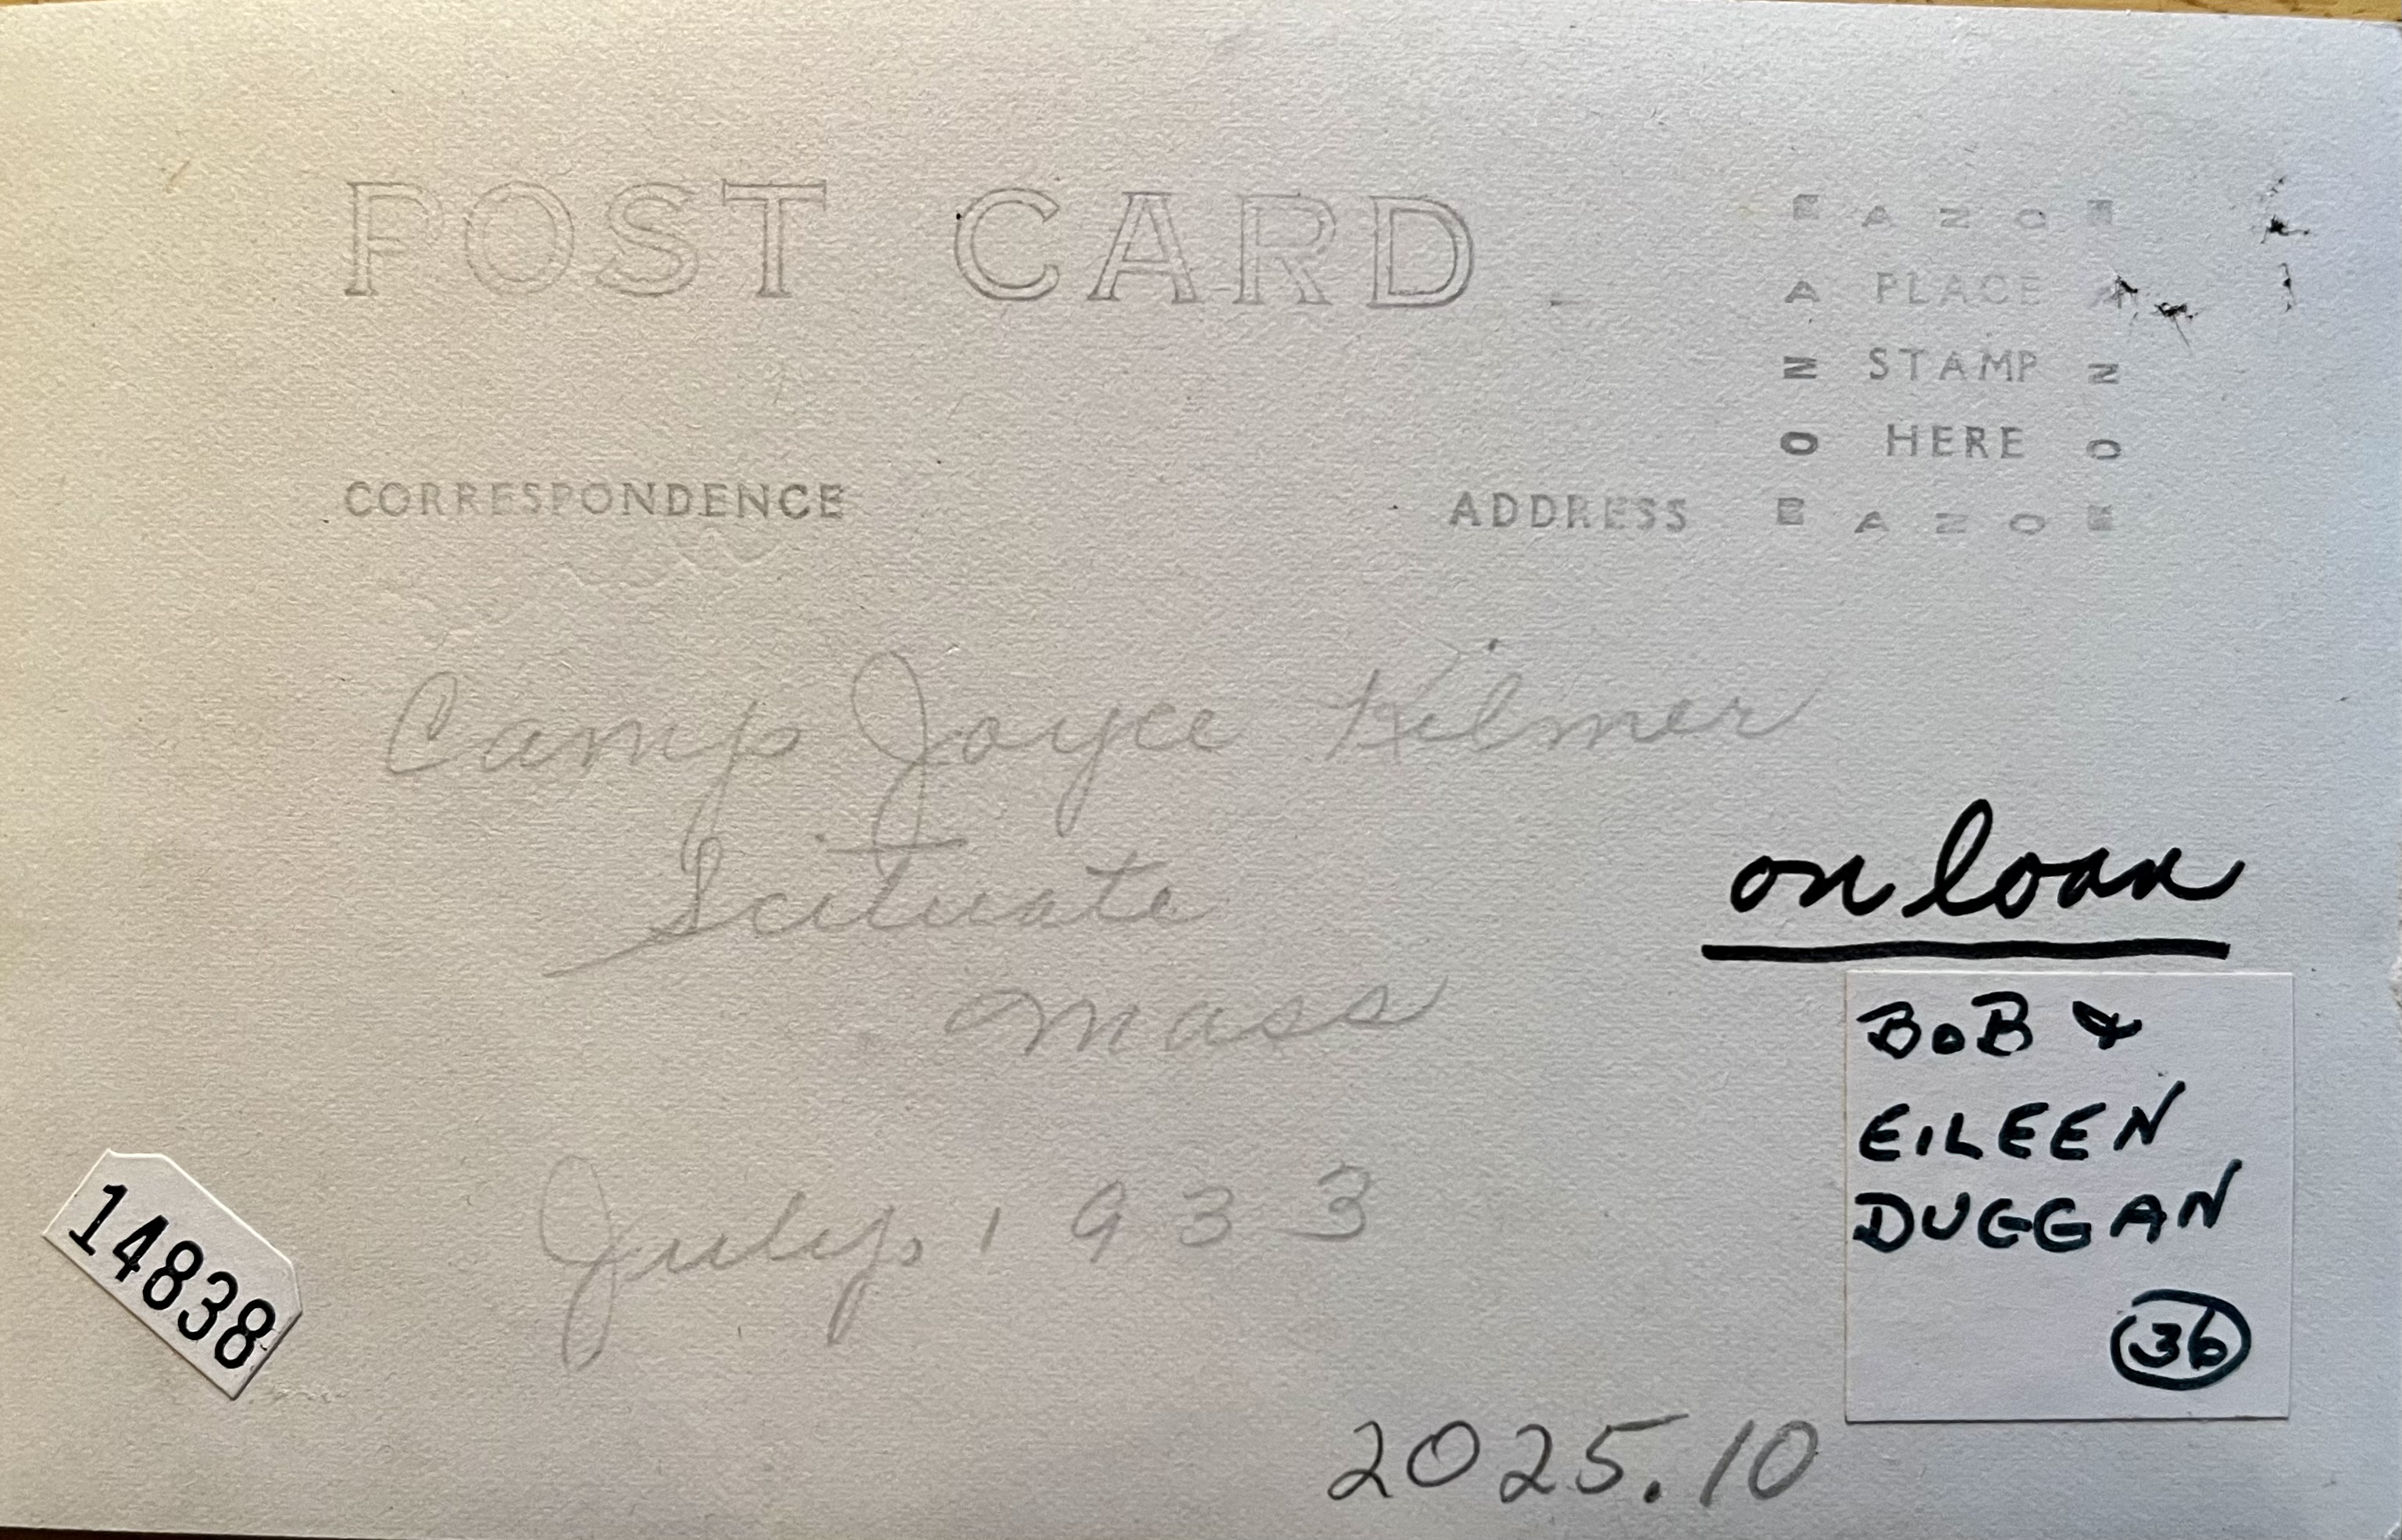 POST CARD
E A Z O E
A PLACE A
N STAMP N
O HERE O
E A Z O E
CORRESPONDENCE
ADDRESS
Camp Joyce Kilmer
Scituate
Mass
July, 1933
on loan
BOB &
EILEEN
DUGGAN
36
14838
2025.10